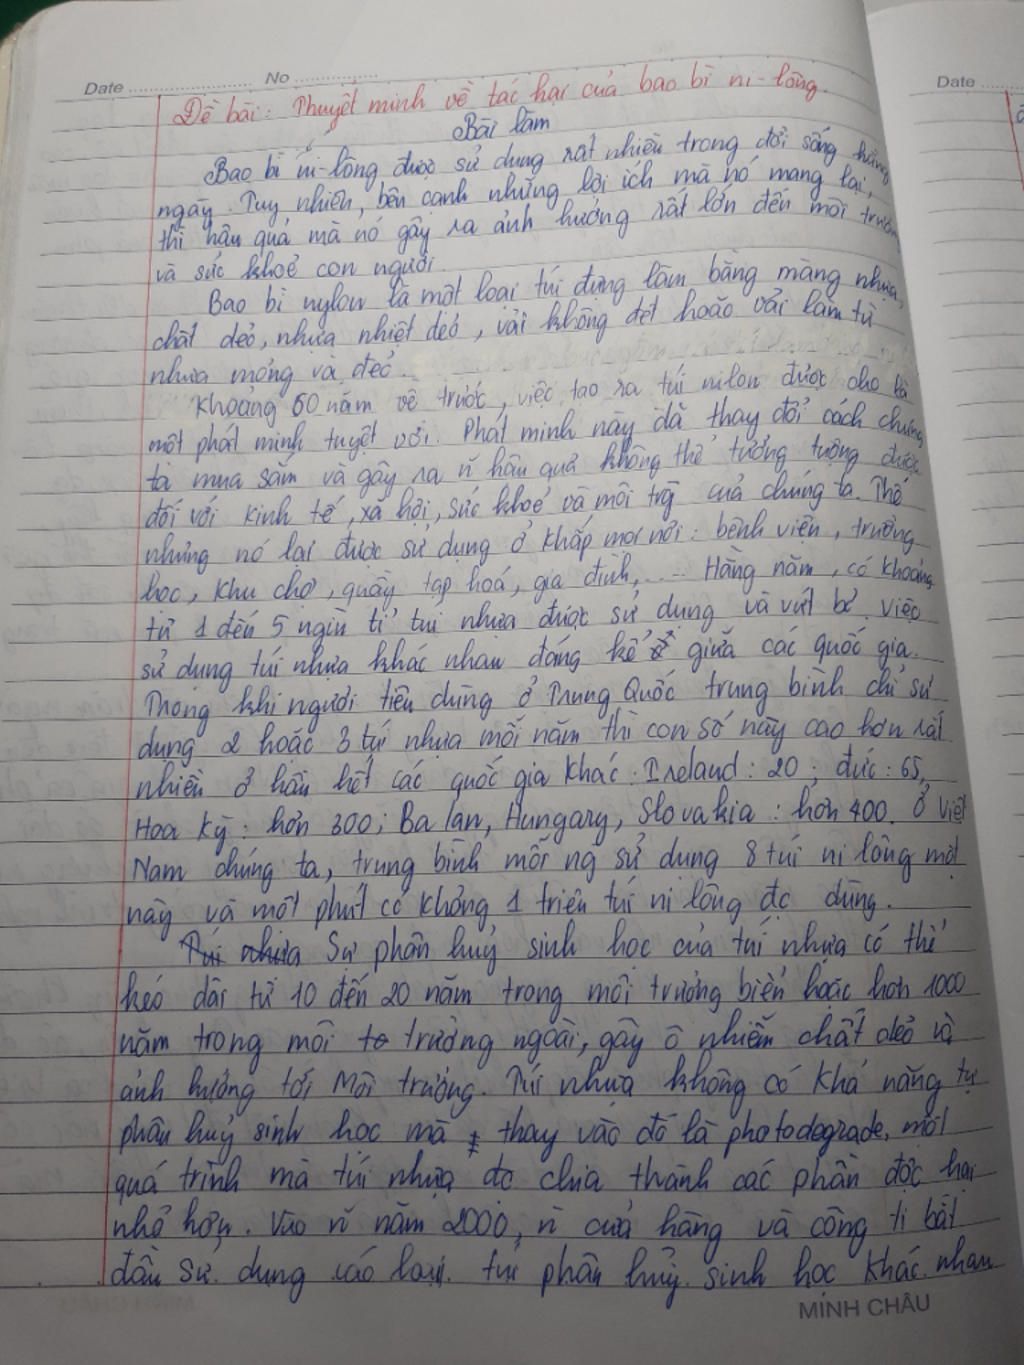 Date ............ No ............
Date ....
Đề bài: Thuyết minh về tác hại của bao bì ni-lông.
Bài làm
Bao bì ni-lông được sử dụng rất nhiều trong đời sống hằng
ngày. Tuy nhiên, bên cạnh những lợi ích mà nó mang lại,
thì hậu quả mà nó gây ra ảnh hưởng rất lớn đến môi trường
và sức khoẻ con người.
Bao bì nylon là một loại túi đựng làm bằng màng nhựa,
chất dẻo, nhựa nhiệt dẻo, vải không dệt hoặc vải làm từ
nhựa mỏng và dẻo.
Khoảng 60 năm về trước, việc tạo ra túi nilon được cho là
một phát minh tuyệt vời. Phát minh này đã thay đổi cách chúng
ta mua sắm và gây ra n~ hậu quả không thể tưởng tượng được
đối với kinh tế, xã hội, sức khoẻ và môi trg của chúng ta. Thế
nhưng nó lại được sử dụng ở khắp mọi nơi: bệnh viện, trường
học, khu chợ, quầy tạp hoá, gia đình,.... Hằng năm, có khoảng
từ 1 đến 5 ngìn tỉ túi nhựa được sử dụng và vứt bỏ. Việc
sử dụng túi nhựa khác nhau đáng kể giữa các quốc gia.
Trong khi người tiêu dùng ở Trung Quốc trung bình chỉ sử
dụng 2 hoặc 3 túi nhựa mỗi năm thì con số này cao hơn rất
nhiều ở hầu hết các quốc gia khác: Ireland: 20; đức: 65,
Hoa Kỳ: hơn 300; Ba lan, Hungary, Slovakia: hơn 400. Ở Việt
Nam chúng ta, trung bình mỗi ng sử dụng 8 túi ni lông một
này và một phút có khỏng 1 triệu túi ni lông đc dùng.
Túi nhựa Sự phân huỷ sinh học của túi nhựa có thể
kéo dài từ 10 đến 20 năm trong môi trường biển hoặc hơn 1000
năm trong môi tr trường ngoài, gây ô nhiễm chất dẻo và
ảnh hưởng tới Môi trường. Túi nhựa không có khả năng tự
phân huỷ sinh học mà thay vào đó là photodegrade, một
quá trình mà túi nhựa đc chia thành các phần độc hại
nhỏ hơn. Vào n~ năm 2000, n~ cửa hàng và công ti bắt
đầu sử dụng các loại túi phân huỷ sinh học khác nhau
MINH CHÂU